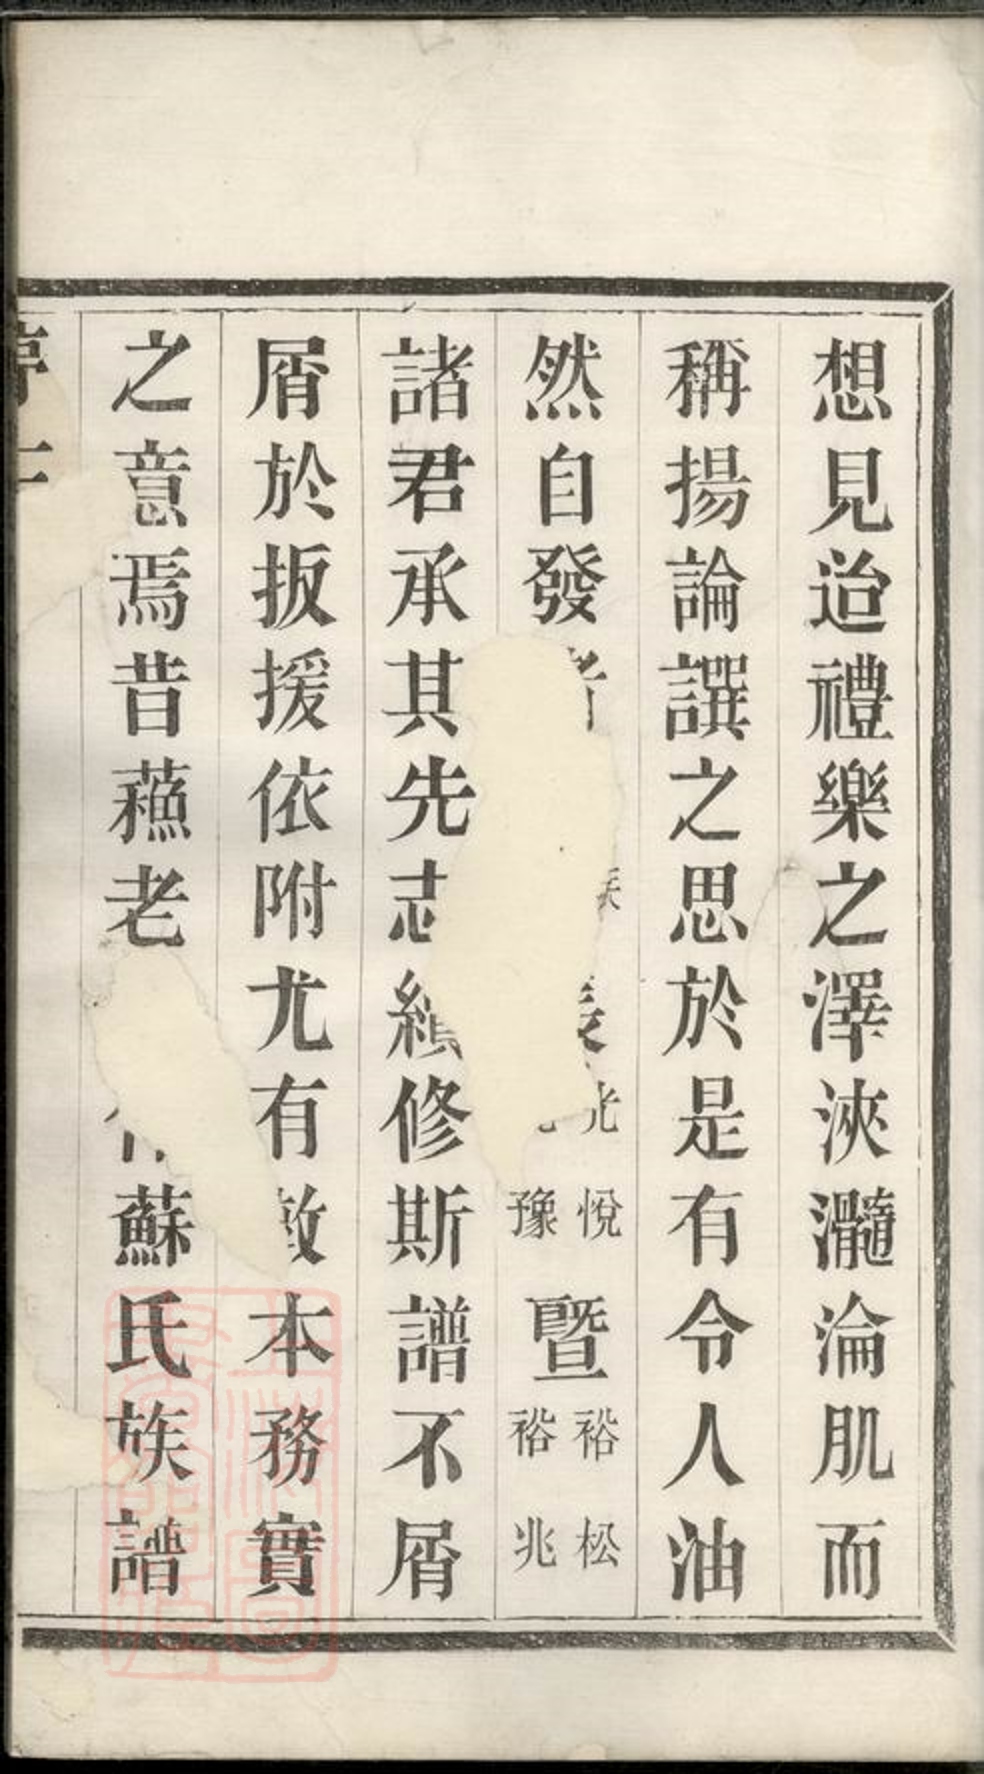 想見迨禮樂之澤浹瀡淪肌而
稱揚論譔之思於是有令人油
然自發者 悅豫暨裕裕松兆
諸君承其先志續修斯譜不屑
屑於扳援依附尤有敦本務實
之意焉昔蘇老 作蘇氏族譜
亭